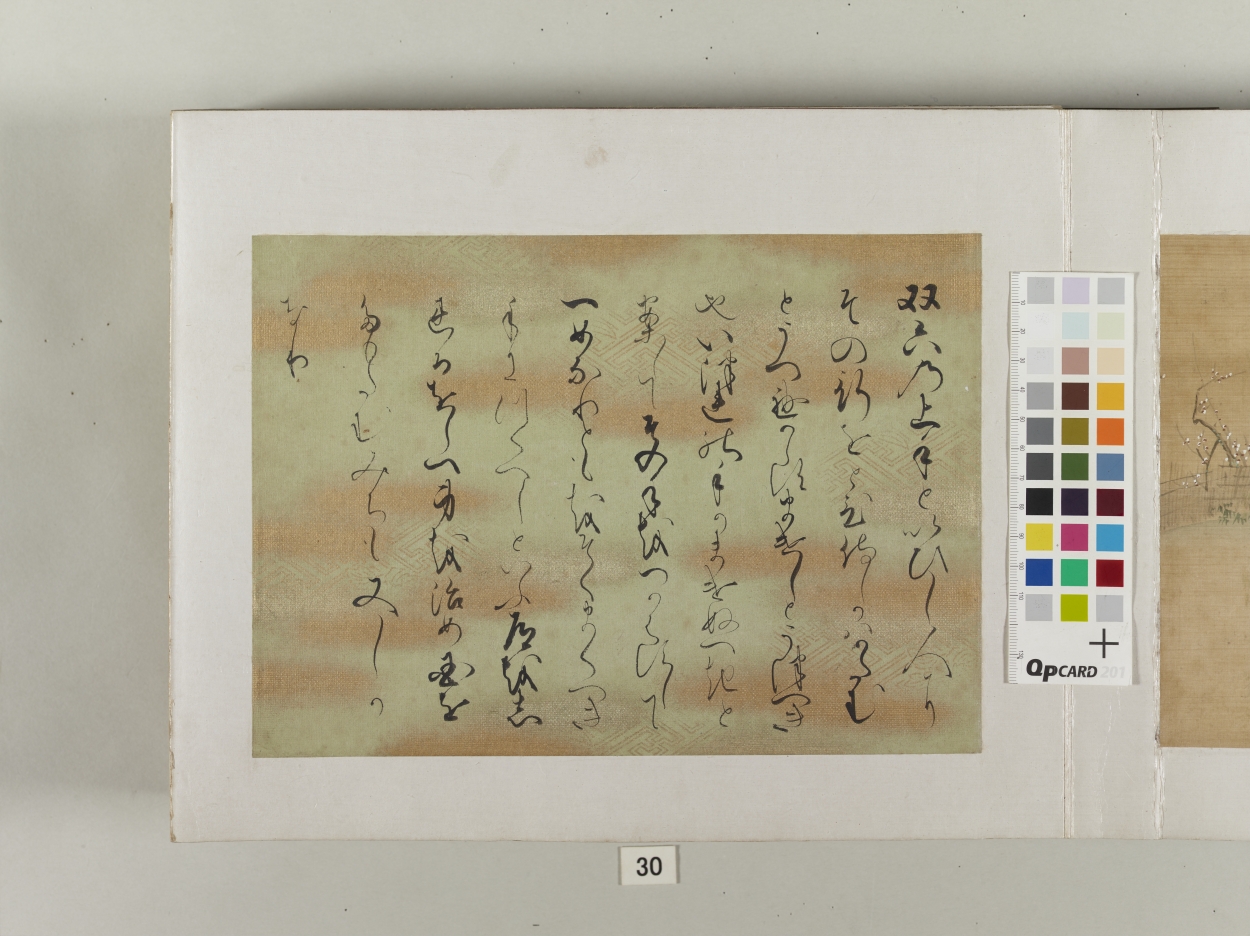 双六乃上手といひし人に
その行をとひ侍しかハかたむ
とうつへからすまけしとうつへき
也いつれの手かまけぬへきと
案してその手をつかはすして
一めなりともをそくまくへき
手につくへしといふ道を志
れるをしへ身を治め国を
たもたむみちも又しか
なり
QPCARD 201
30